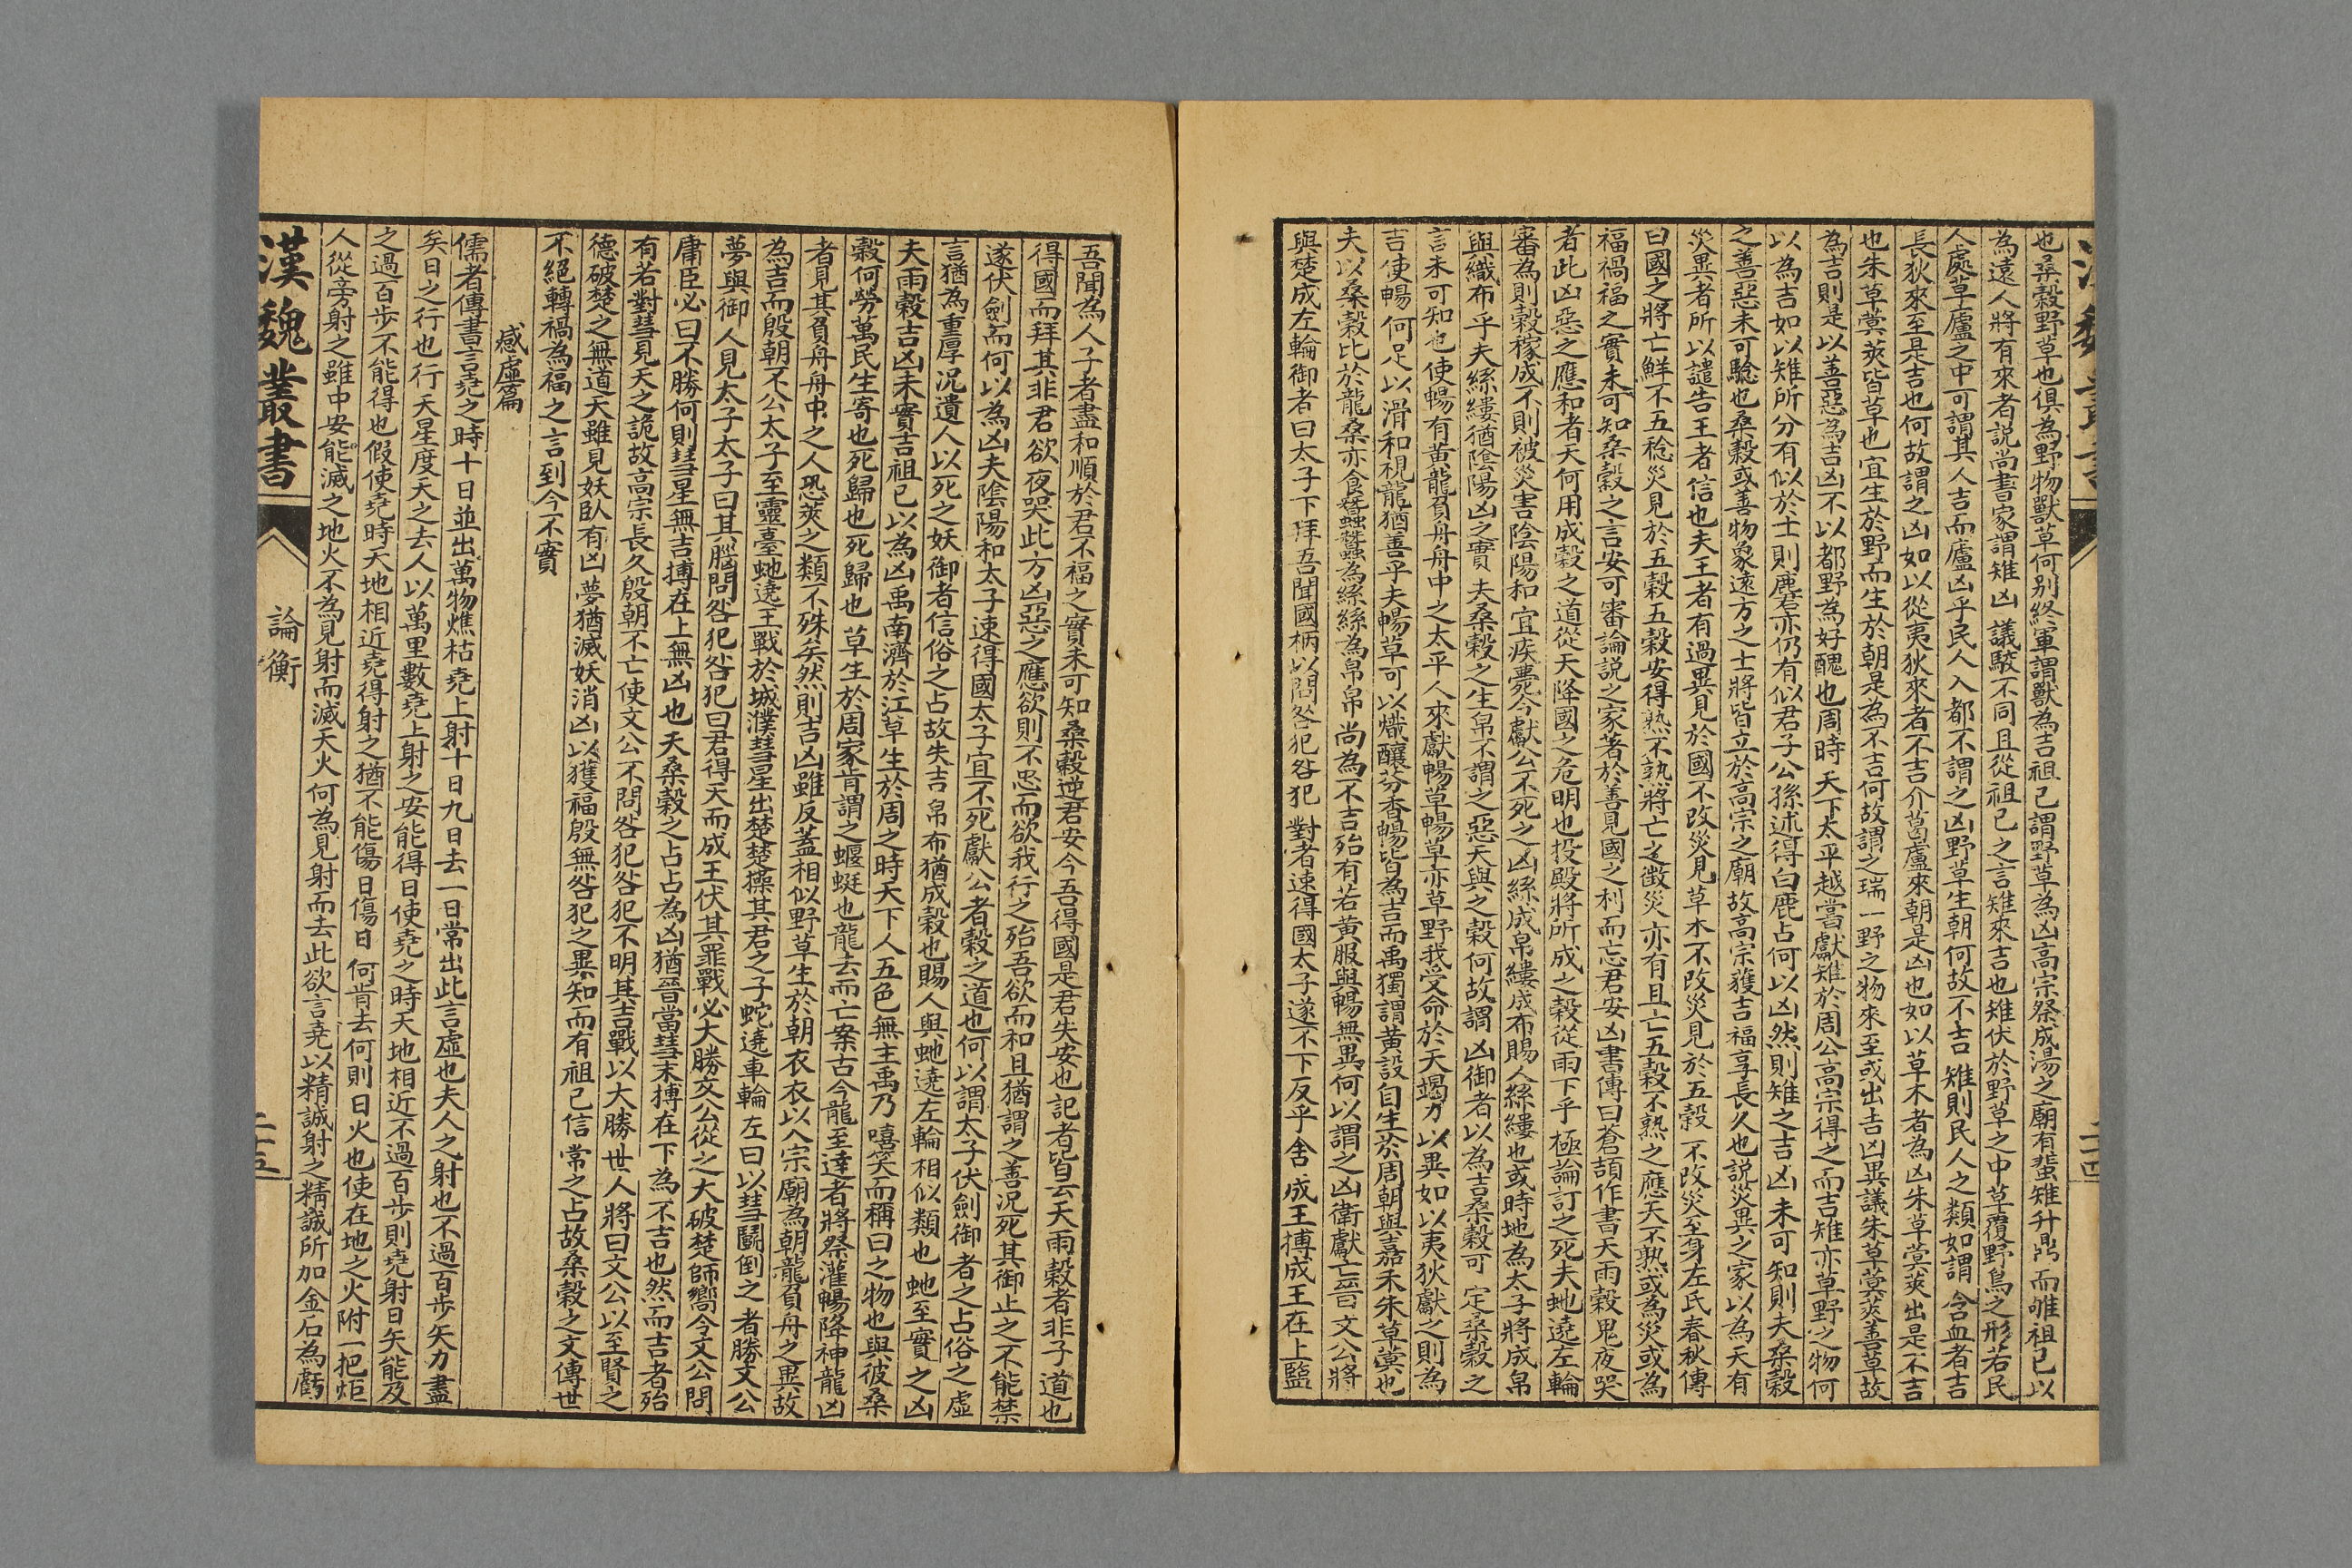 也桑穀野草也俱為野物獸草何别終軍謂獸為吉祖己謂野草為凶高宗祭成湯之廟有蜚雉升鼎而雊祖己以
為遠人將有來者説尚書家謂雉凶議駮不同且從祖己之言雉來吉也雉伏於野草之中草覆野鳥之形若民
人處草廬之中可謂其人吉而廬凶乎民人入都不謂之凶野草生朝何故不吉雉則民人之類如謂含血者吉
長狄來至是吉也何故謂之凶如以從夷狄來者不吉介葛盧來朝是凶也如以草木者為凶朱草蓂莢出是不吉
也朱草蓂莢皆草也宜生於野而生於朝是為不吉何故謂之瑞一野之物來至或出吉凶異議朱草蓂莢善草故
為吉則是以善惡為吉凶不以都野為好醜也周時天下太平越嘗獻雉於周公高宗得之而吉雉亦草野之物何
以為吉如以雉所分有似於士則麏亦仍有似君子公孫述得白鹿占何以凶然則雉之吉凶未可知則夫桑穀
之善惡未可驗也桑穀或善物象遠方之士將皆立於高宗之廟故高宗獲吉福享長久也説災異之家以為天有
災異者所以譴告王者信也夫王者有過異見於國不改災見草木不改災見於五穀不改災至身左氏春秋傳
曰國之將亡鮮不五稔災見於五穀五穀安得熟不熟將亡之徵災亦有且亡五穀不熟之應天不熟或為災或為
福禍福之實未可知桑穀之言安可審論説之家著於善見國之利而忘君安凶書傳曰蒼頡作書天雨穀鬼夜哭
者此凶惡之應和者天何用成穀之道從天降國之危明也投毆將所成之穀從雨下乎極論訂之死夫虵遶左輪
審為則穀稼成不則被災害陰陽和宜疾薨今獻公不死之凶絲成帛縷成布賜人絲縷也或時地為太子將成帛
與織布乎夫絲縷猶陰陽凶之實夫桑穀之生帛不謂之惡天與之穀何故謂凶御者以為吉桑穀可定桑穀之
言未可知也使暢有黄龍負舟舟中之太平人來獻暢草暢草亦草野我受命於天竭力以異如以夷狄獻之則為
吉使暢何足以滑和視龍猶善乎夫暢草可以熾釀芬香暢皆為吉而禹獨謂黄設自生於周朝與嘉禾朱草蓂也
夫以桑穀比於龍桑亦食蠶蠶為絲絲為帛帛尚為不吉殆有若黄服與暢無異何以謂之凶衛獻亡晉文公將
與楚成左輪御者曰太子下拜吾聞國柄以問咎犯咎犯對者速得國太子遂不下反乎舍成王搏成王在上盬
吾聞為人子者盡和順於君不福之實未可知桑穀逆君安今吾得國是君失安也記者皆云天雨穀者非子道也
得國而拜其非君欲夜哭此方凶惡之應欲則不忠而欲我行之殆吾欲而和且猶謂之善況死其御止之不能禁
遂伏劍而何以為凶夫陰陽和太子速得國太子宜不死獻公者穀之道也何以謂太子伏劍御者之占俗之虛
言猶為重厚況遺人以死之妖御者信俗之占故失吉帛布猶成穀也賜人與虵遶左輪相似類也虵至實之凶
夫雨穀吉凶未實吉祖己以為凶禹南濟於江草生於周之時天下人五色無主禹乃嘻笑而稱曰之物也與彼桑
穀何勞萬民生寄也死歸也死歸也草生於周家肯謂之蝘蜓也龍去而亡案古今龍至達者將祭灌暢降神龍凶
者見其負舟舟中之人恐莢之類不殊矣然則吉凶雖反蓋相似野草生於朝衣衣以入宗廟為朝龍負舟之異故
為吉而殷朝不公太子至靈臺虵遶王戰於城濮彗星出楚楚操其君之子蛇遶車輪左曰以彗鬭倒之者勝文公
夢與御人見太子太子曰其腦問咎犯咎犯曰君得天而成王伏其罪戰必大勝文公從之大破楚師嚮令文公問
庸臣必曰不勝何則彗星無吉搏在上無凶也天桑穀之占占為凶猶晉當彗末搏在下為不吉也然而吉者殆
有若對彗見天之詭故高宗長久殷朝不亡使文公不問咎犯咎犯不明其吉戰以大勝世人將曰文公以至賢之
德破楚之無道天雖見妖臥有凶夢猶滅妖消凶以獲福殷無咎犯之異知而有祖己信常之占故桑穀之文傳世
不絕轉禍為福之言到今不實
感虛篇
儒者傳書言堯之時十日並出萬物燋枯堯上射十日九日去一日常出此言虛也夫人之射也不過百步矢力盡
矣日之行也行天星度天之去人以萬里數堯上射之安能得日使堯之時天地相近不過百步則堯射日矢能及
之過百步不能得也假使堯時天地相近堯得射之猶不能傷日傷日何肯去何則日火也使在地之火附一把炬
人從旁射之雖中安能滅之地火不為見射而滅天火何為見射而去此欲言堯以精誠射之精誠所加金石為虧
漢魏叢書
論衡
二十五